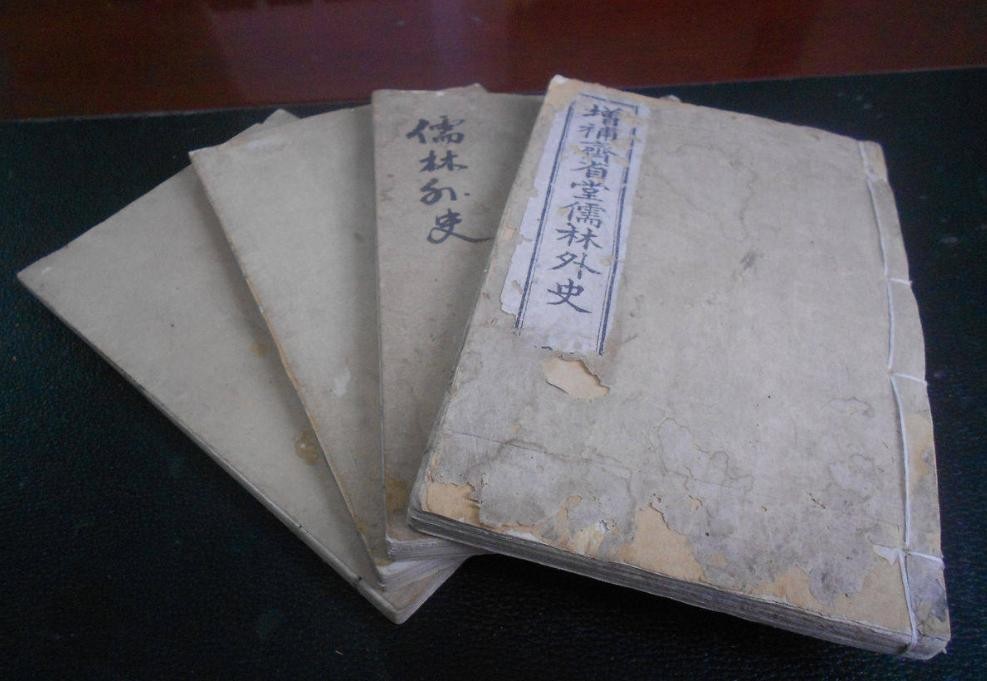 增補齊省堂儒林外史
儒林外史